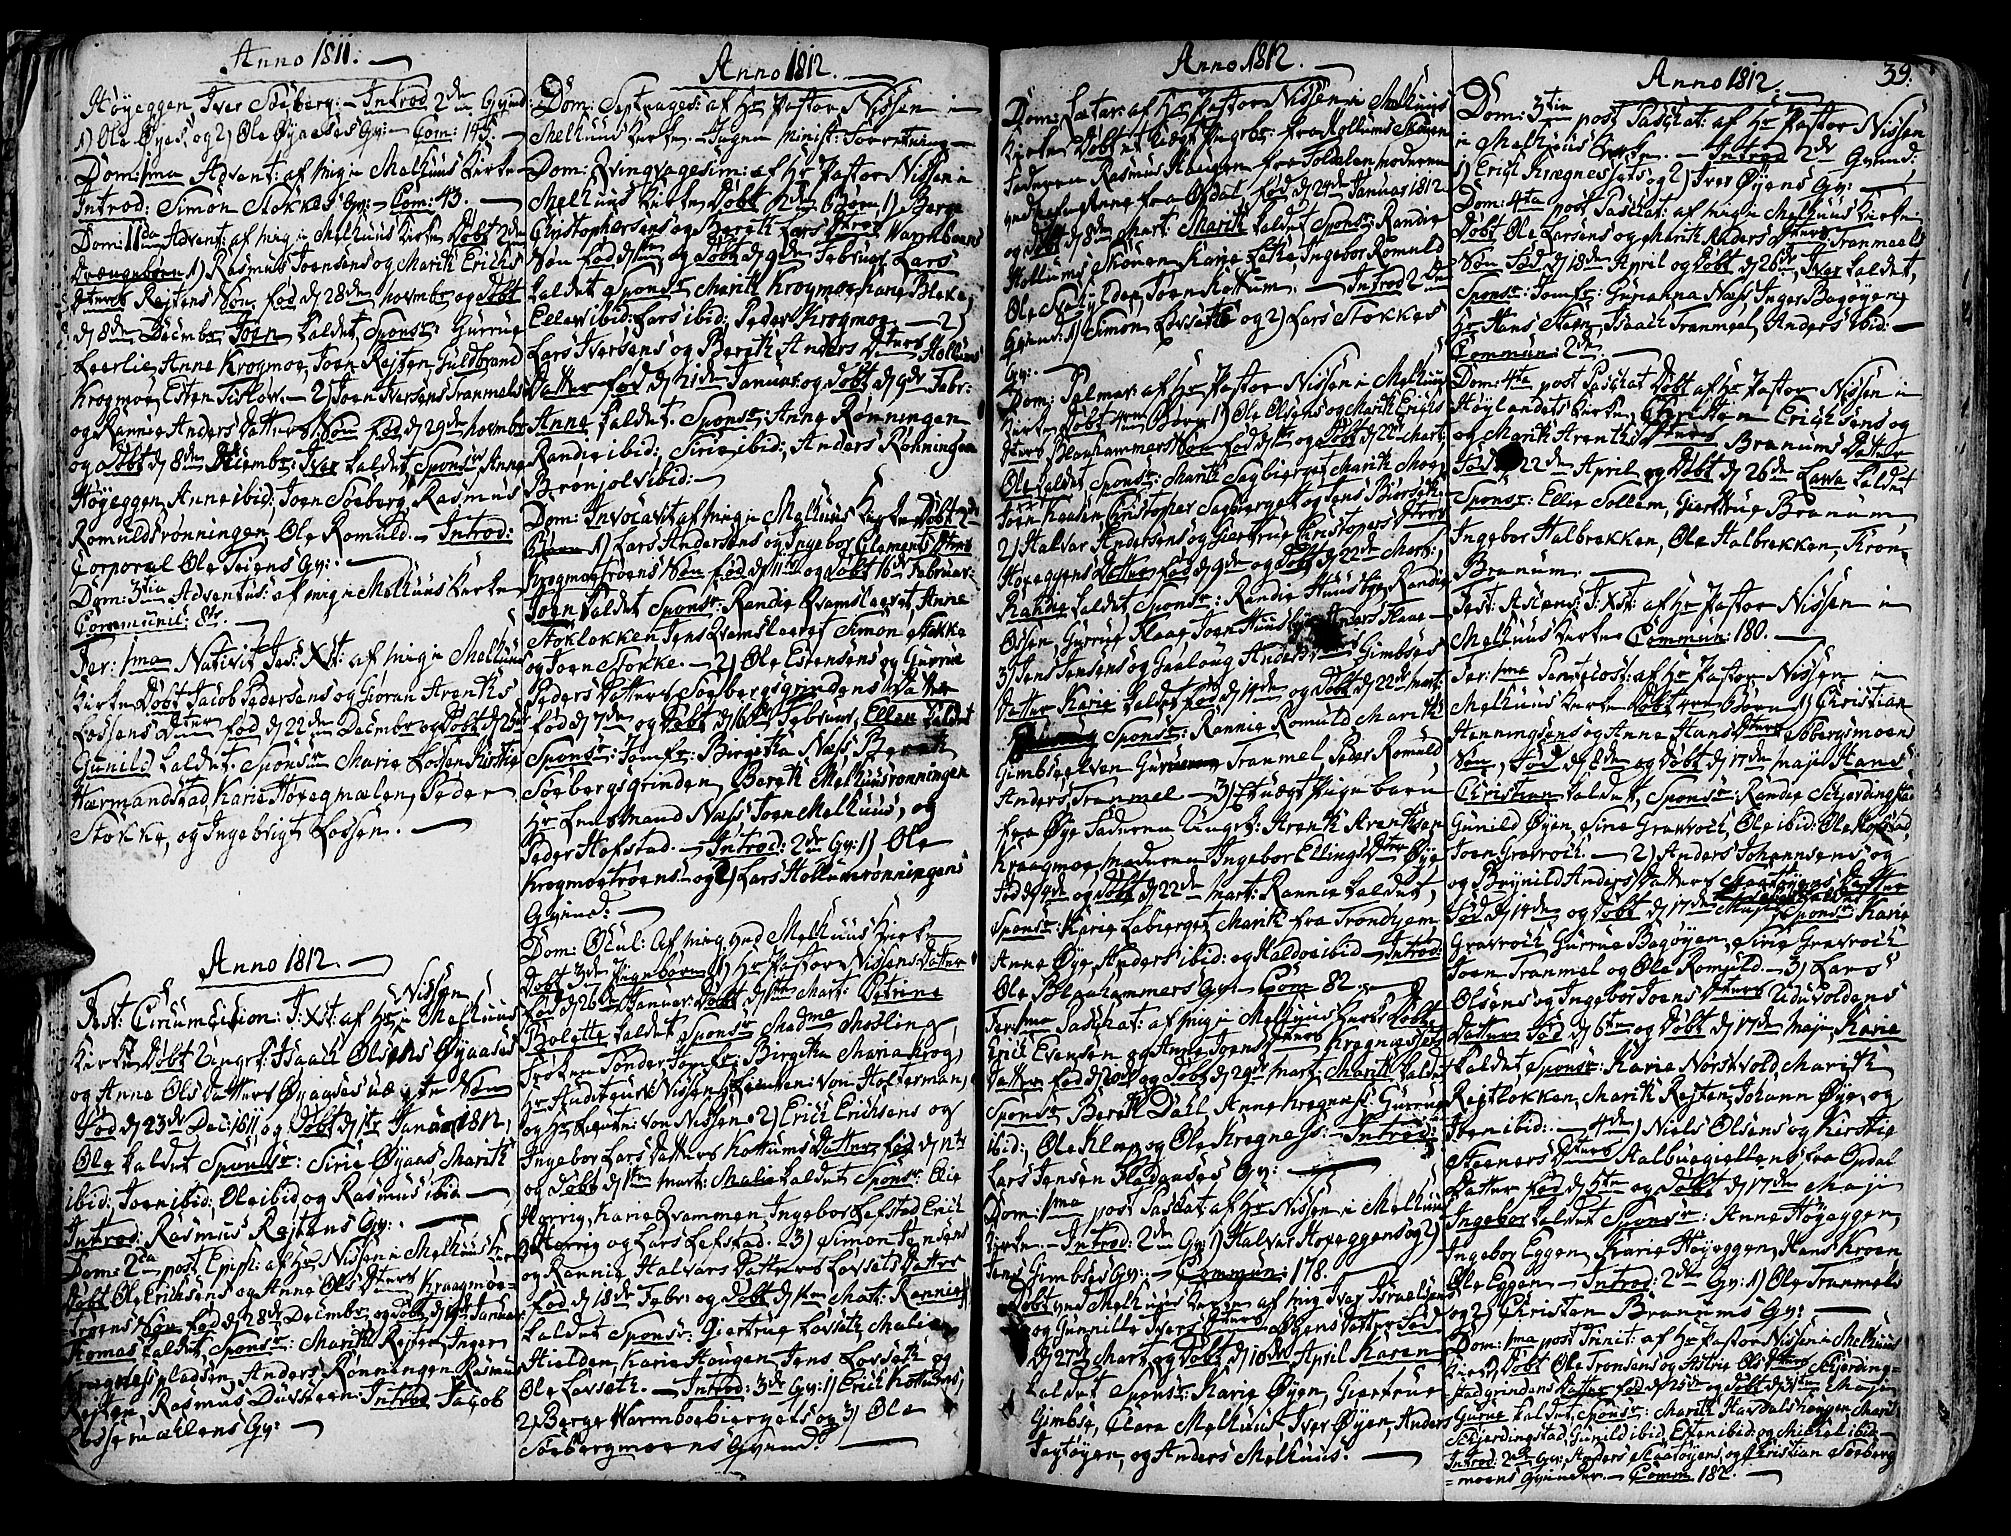 Anno 1811.
Høyeggen Iver Søeberg: Introd: 2de Gvind:
1) Ole Øyes og 2) Ole Øyaases Gv: Com: 145.
Dom: 1ma Advent: af mig i Melhuus Kirke
Introd: Simon Stokkes Gv: Com: 43.
Dom: 11da Advent: af mig i Melhuus Kirke Døbt 2de
Drængebørn 1) Rasmus Joensens og Marith Erichs
Dtters Røstens Søn fød d 28de Novembr og Døbt
d 8de Decembr Joen kaldet, Sponsr: Gurrue
Leerlie, Anne Krogmoe, Joen Røsten Guldbrand
Krogmoe, Esten 2) Joen Iversens Tranmæls
og Rannie Anders Datters Søn fød d 29de Novembr
og Døbt d 8de Decembr: Iver kaldet, Sponsr Anne
Høyeggen, Anne ibid: Joen Søeberg, Rasmus
Romuldsrønningen, Ole Romuld. Introd:
Corporal Ole Teiens Gv:
Dom: 3tia Adventus: af mig i Melhuus Kirke
Communic: 8te.
Fer: 1ma Nativit Jes: Xst: af mig i Melhuus
Kirke Døbt Jacob Pedersens og Giøran Arenths
Lossens Dtter fød d 22de Decembr og Døbt d 25de
Gunild kaldet. Sponsr Marie Lossen Kirstie
Hærmandstad, Karie Høyegmælen, Peder
Stokke, og Ingebrigt Lossen.
Anno 1812.
Fest: Circumcision: J: Xst: af Hr Nissen i Melhuus
Kirke Døbt Ungk: Isaach Olsens Øyaases
og Anne Ols Datters Øyaases Søn
Fød d 23de Dec: 1811 og Døbt d 1te Januar 1812,
Ole kaldet Sponsr: Sirie Øyaas, Marith
ibid: Joen ibid: Ole ibid og Rasmus ibid.
Introd: Rasmus Røstens Gv:
Dom: 2da post Epiph: af Hr Nissen i Melhuus K:
Døbt Ole Erichsens og Anne Ols Dtters Kraagmoe-
troens Søn fød d 28de Decembr: og Døbt d 19de Januar
Thomas kaldet, Sponsr: Marith Røsten, Inger
Krognespladsen, Anders Rønningen, Rasmus
Røsten, Rasmus Introd Jacob
Lossemælens Gv:
Anno 1812.
Dom: Septuages: af Hr Pastor Nissen i
Melhuus Kirke. Ingen Minist: Forretning
Dom: Qvinqvagesim: af Hr Pastor Nissen i
Melhuus Kirke Døbt 2de Børn, 1) Berge
Christophersens og Bereth Lars Dtter Warmboens
Søn fød d og Døbt d 9de Februar, Lars
kaldet, Sponsr, Marith Krogmoe, Karie Bleke,
Ellev ibid: Lars ibid: Peder Krogmoe. 2)
Lars Iversens og Bereth Anders Dtters Hollum
Datter fød d 21de Januar: og døbt d 9de Febr:
Anne kaldet, Sponsr: Anne Rønningen
Randie ibid:, Sirie ibid:, Anders Rønningen
Brønjolv ibid:
Dom: Invocavit af mig i Melhuus Kirke Døbt 2de
Børn 1) Lars Andersens og Ingebor Clements Dtters
Krogmoetroens Søn fød d 11te og Døbt 16de Februar:
Joen kaldet Sponsr: Randie Qvamsleeret, Anne
Stokløkken, Jens Qvamsleeret Simon Stokke
og Joen Stokke. 2) Ole Estensens og Gurrue
Peders Datters Søebergsgrindens Datter
fød d 7de og Døbt d 16de Februar, Ellen kaldet
Sponsr: Jomfr: Birgitha Næss Bereth
Søebergsgrinden, Bereth Melhuusrønningen
Hr Lensmand Næss Joen Melhuus, og
Peder Hofstad. Introd: 2de Gv: 1) Ole
Krogmoetroens og 2) Lars Hollumrønningens
Gvinnd:
Dom: Ocul: af mig ved Melhuus Kirke
døbt 3de Pigebørn 1) Hr Pastor Nissens Datter
fød d 26de Januar: Døbt d 1te Mart: Petrine
Bolette kaldet Sponsr Madme Mosling
Frøken Tønder, Jomfr: Birgitha Maria Krog,
Hr Auditeur Nissen, Hr Leuten: von Holterman,
og Hr Leuten: von Nissen. 2) Erich Erichsens og
Ingebor Lars Datters Kottums Datter fød d
og Døbt d 1te Mart: Malie kaldet Sponsr: Olie
Horrig, Karie Qvammen, Ingebor Løfstad Erich
Horrig og Lars Løfstad. 3) Simon Jensens
og Rannie Halvars Datters Løvsets Datter
fød d 18de Febr: og Døbt d 1te Mart: Rannie
kaldet Sponsr: Giertrue Løvseth, Malie
Hielden, Karie Haugen, Jens Løvseth og
Ole Løvseth. Introd: 3de Gv: 1) Erich Kottums,
2) Berge Warmboebiergets og 3) Ole
Søebergmoens Gvinnd:
Anno 1812.
Dom: Lætare af Hr Pastor Nissen i Melhuus
Kirke Døbt et uægte Pigebr: fra Hollums Skoven
Faderen Rasmus Haugen fra Soldalen, moderen
fra Opdal, fød d 24de Januar 1812
og døbt d 8de Mart: Marith kaldet Sponsr Randie
Hollumsskoven, Karie Løkke, Ingebor Romuld
Ole Joen Kottum. Introd 2de
Gvind: 1) Simon Løvseths og 2) Lars Stokkes
Gv:
Dom: Palmar: af Hr Pastor Nissen i Melhuus
Kirke Døbt 4re Børn 1) Ole Olsens og Marith Erichs
Dtters Blaahammers Søn fød d og Døbt d 22de Mart:
Ole kaldet Sponsr: Marith Sagbierget, Marith Moe,
Joen Kaasen, Christopher Sagberget og Jens Biørset.
2) Halvar Andersens og Giertrue Christopers Dtters
Høyegyens Datter fød d 9de og Døbt d 22de Mart:
Randie kaldet Sponsr: Randie Huusbye, Randie
Øssen, Gurrue Flaae, Joen Huusbye, Anders Flaae
3) Jens Jensens og Gaaloug Anders Dtters Gimbses
Datter Karie kaldet fød d 14de og Døbt d 22de Mart:
Sponsr: Rannie Romuld Marith
Gimbse, Even Tranmel, Peder Romuld
Anders Tranmel. 3) Et uægte Pigebarn
fra Øye Faderen Ungk: Arenth Arentsen
Kraagmoe, moderen Ingebor Ellings Dtter Øye
Fød d 4de og Døbt d 22de Mart: Rannie kaldet,
Sponsr: Karie Løbierget, Marith fra Trondhjem
Anne Øye, Anders ibid: og Haldo ibid. Introd:
Ole Blaahammers Gv: Com 82.
Fer: 1ma Paschat: af mig i Melhuus Kirke Døbt
Erich Evensen og Anne Joens Dtters Kregnessets
Datter fød d 20de og Døbt d 29de Mart, Marith kaldet
Sponsr Bereth Dahl, Anne Kregness: Gurrue
ibid:, Ole Klep, og Ole Kregness:. Introd:
Lars Jensen Fladaases Gv:
Dom: 1ma post Paschat af Hr Nissen i Melhuus
Kirke. Introd: 2de Gv: 1) Halvar Høyeggens og 2)
Jens Gimbses Gv: Commun: 178.
Døbt ved Melhuus Kirke af mig Iver Israelsen
og Gunnille Ivers Dtters Øyens Datter fød
d 27de Mart og Døbt d 10de April Karen
kaldet Sponsr: Karie Øyen, Giertrue
Gimbse, Clara Melhuus, Iver Øyen, Anders
Teigtøyen, og Anders Melhuus.
39.
Anno 1812.
Dom: 3tia post Paschat: af Hr Pastor Nissen
i Melhuus Kirke. Introd 2de Gvind:
1) Erich Krægnessets og 2) Iver Øyens Gv:
Dom: 4ta post Paschat: af mig i Melhuus Kirke
Døbt Ole Larsens og Marith Anders Dtters Tranmæls
Søn Fød d 18de April og Døbt d 26de, Iver kaldet,
Sponsr: Jomfr: Gurianna Næss Inger Bagøyen,
Hr Hans Steen, Isaach Tranmæl, Anders ibid:
Commun: 2de
Dom: 4ta post Paschat Døbt af Hr Pastor Nissen i
Høylandets Kirke, Christen Erichsens og
og Marith Arenths Dtters Branums Datter
Fød 22de April og Døbt d 26de Lawa kaldet
Sponsr: Ellie Sollem, Giertrue Branum
Ingebor Halbrekken, Ole Halbrekken, Tron
Branum.
Fest: Ascens: J: Xst: af Hr Pastor Nissen i
Melhuus Kirke Commun: 180.
Fer: 1ma Pentecost: af Hr Pastor Nissen i
Melhuus Kirke Døbt 4re Børn 1) Christian
Henningsens og Anne Hans Dtters Søbergsmoens
Søn, Fød d 8de og Døbt d 17de Maji Hans
Christian kaldet, Sponsr: Randie Skjerdingstad
Gunild Øyen, Sirie Gravrock, Ole ibid: Ole Hofstad,
Joen Gravrock. 2) Anders Johannsens og
og Brynild Anders Datters Skaatøyens Datter
Fød d 14de og Døbt d 17de Maji Sponsr Karie
Gravrock Gurrue Bagøyen, Sirie Gravrock
Joen Tranmel og Ole Romuld. 3) Lars
Olsens og Ingebor Joens Dtters Uduvoldens
Datter Fød d 6te og Døbt d 17de Maji, Karie
kaldet, Sponsr: Karie Norskvold, Marith
Røstløkken, Marith Røsten, Johann Øye, og
Joen ibid:. 4de) Niels Olsens og Kirstie
Steeners Dtters Aalbuegiellens fra Opdal
Datter fød d 5te og Døbt d 17de Maji
Ingebor kaldet Sponsr: Anne Høyeggen,
Ingebor Eggen, Karie Høyeggen, Hans Kroen
Ole Eggen. Introd: 2de Gv: 1) Ole Tranmels
og 2) Christen Branums Gv:
Dom: 1ma post Trinit: af Hr Pastor Nissen i Melhuus
Kirke Døbt Ole Tronsens og Astrie Ols Dtters Skjerding-
stadgrindens Datter fød d 25de og Døbt d 31te Maji
Gurue kaldet, Sponsr: Marith Havdalshaugen, Marit
Skjerdingstad, Gunild ibid, Even ibid: og Michel ibid
Introd: 2de Gv: Anders Skaatøyens, og Christian Søeberg
moens Gvinder. Comm 182.